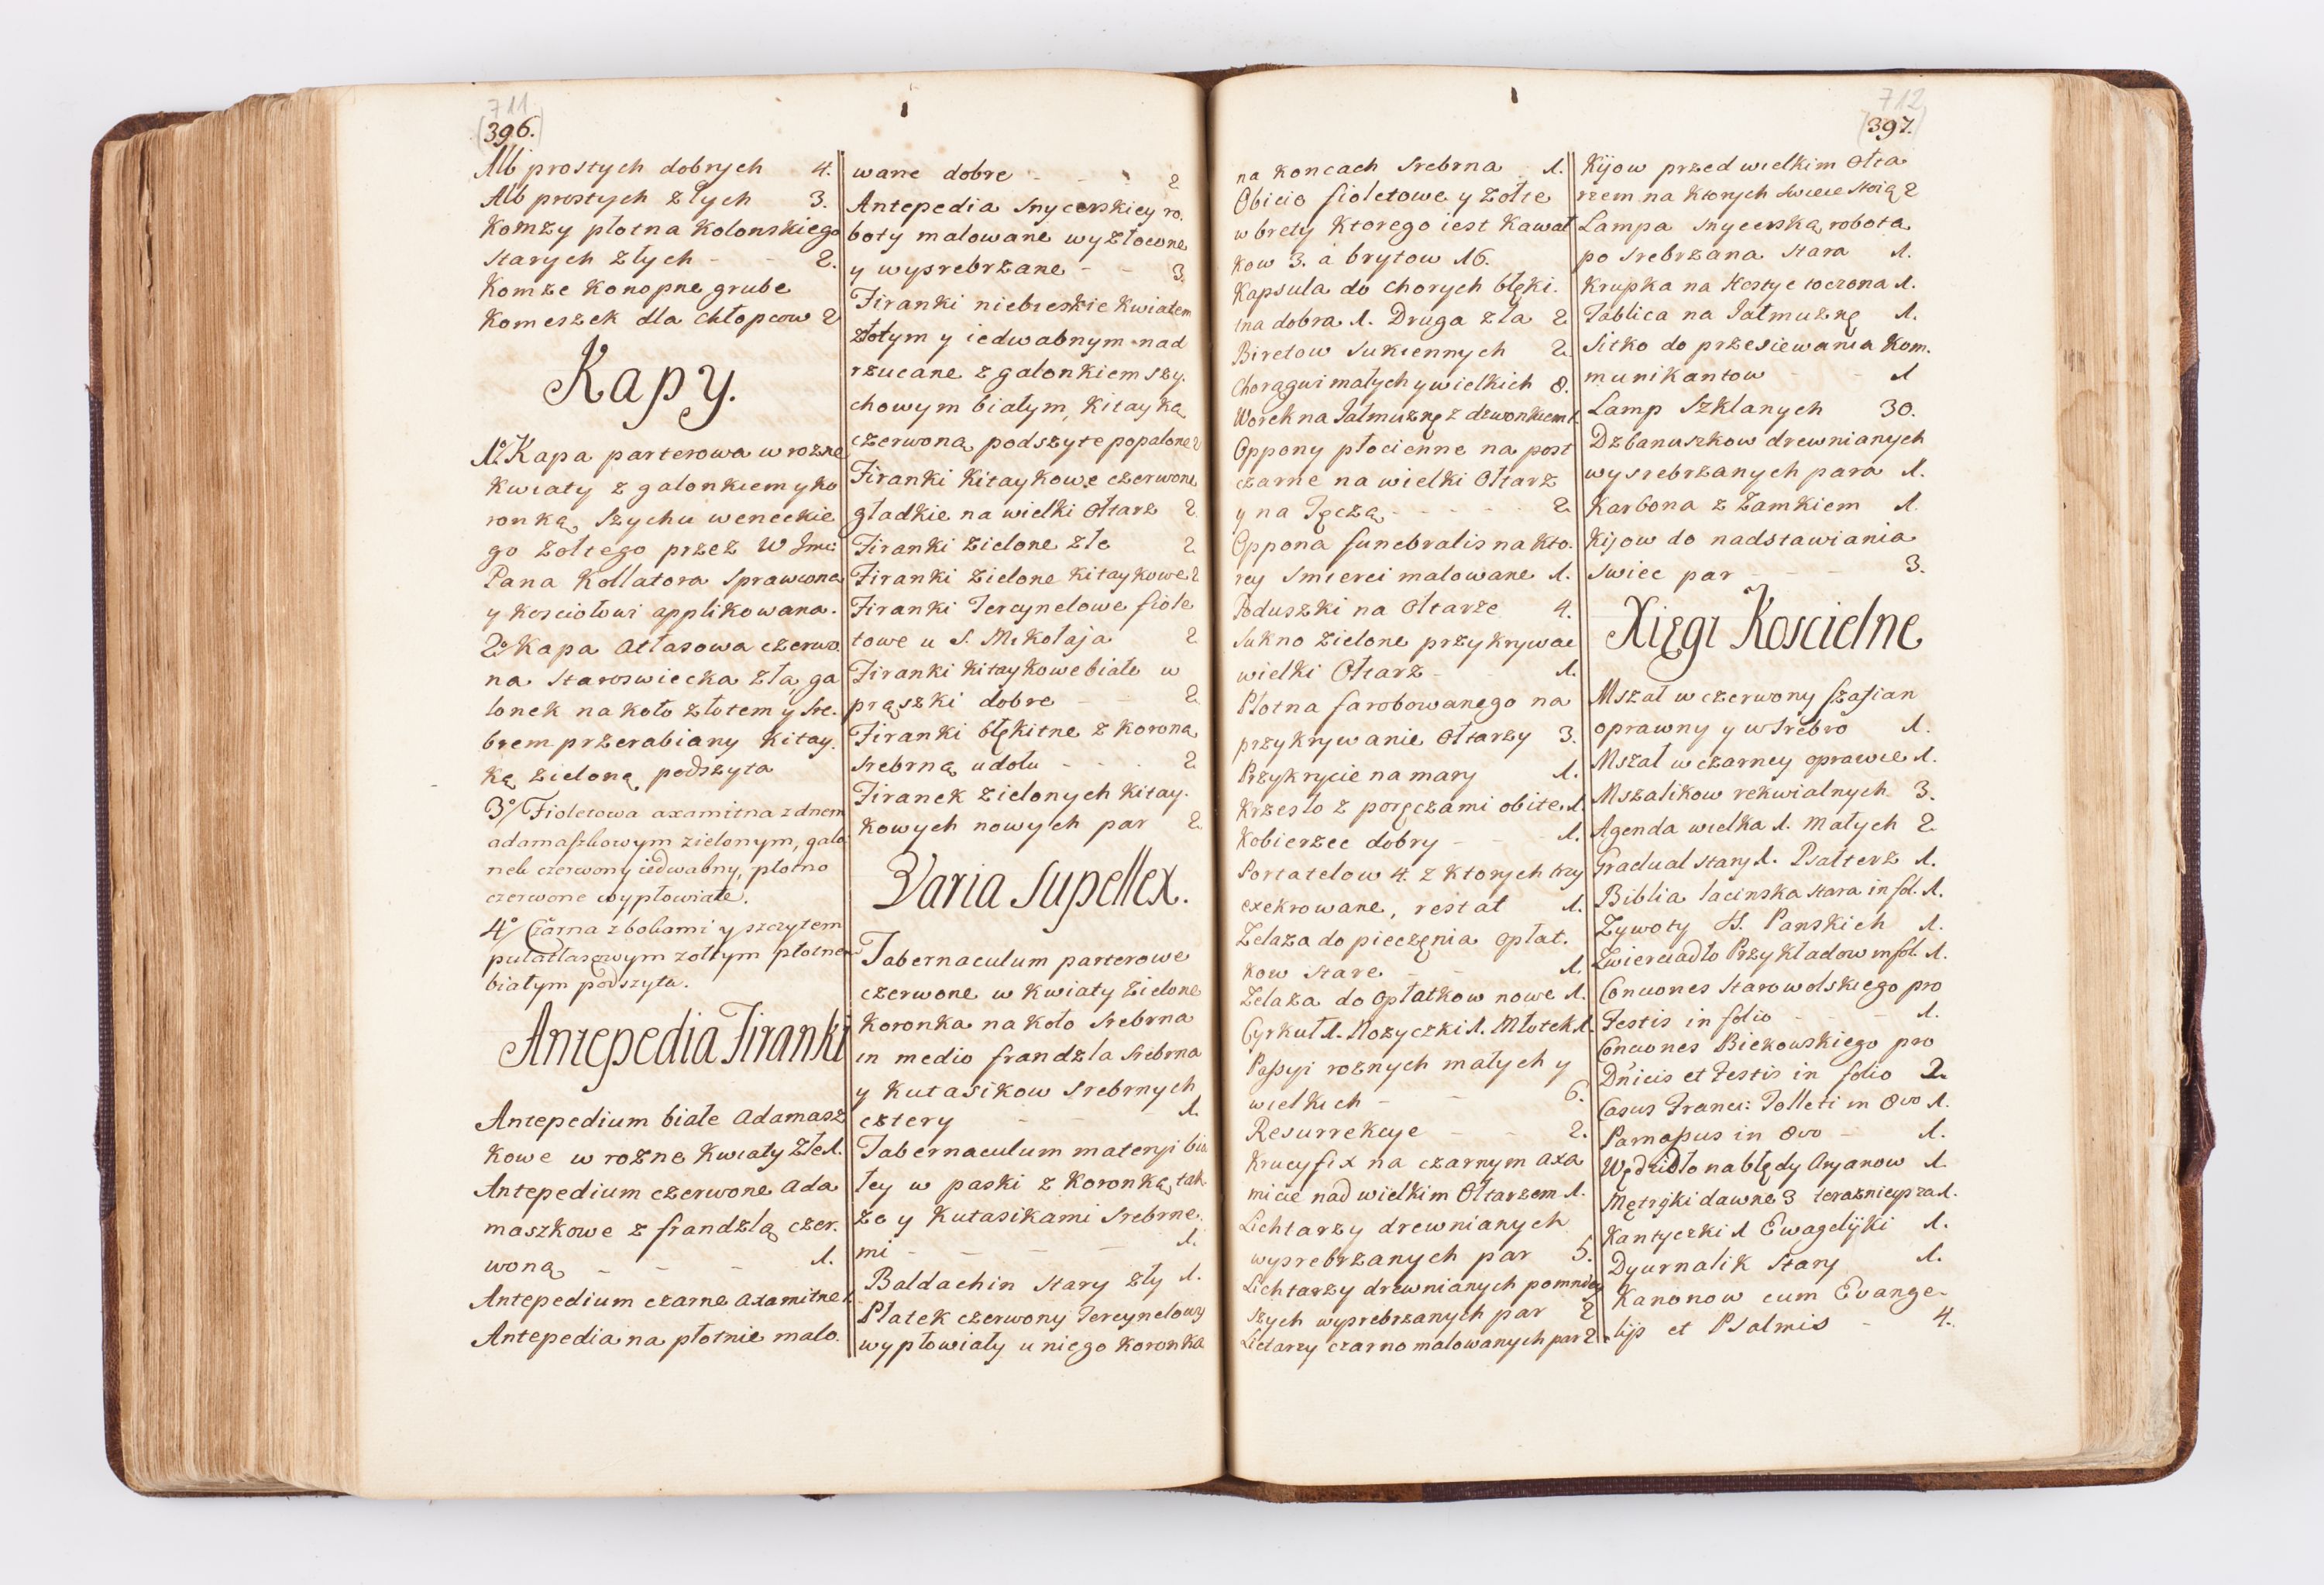 711
396.
Alb prostych dobrych 4.
Alb prostych złych 3.
Komzy płotna Kolonskiego
starych złych - - 2.
Komze Konopne grube
Komeszek dla chłopcow 2
Kapy.
1º Kapa parterowa w rozne
Kwiaty z galonkiem y ko
ronką, szychu weneckie
go zołtego przez W Jmci
Pana Kollatora sprawiona
y Kosciołowi applikowana.
2º Kapa Atłasowa czerwo.
na Staroswiecka zła, ga
lonek na koło złotem y sre.
brem przerabiany Kitay.
ką zieloną podszyta
3º/ Fioletowa axamitna z dnem
adamaszkowym zielonym, galo
nek czerwony iedwabny, płotno
czerwone wypłowiałe.
4º/ Czarna z bokami y szczytem
pułatłasowym zołtym płotnem
białym podszyta.
Antepedia Firanki
Antepedium białe Adamasz
Kowe w rozne Kwiaty złe 1.
Antepedium czerwone Ada
maszkowe z frandzlą czer.
woną - - - 1.
Antepedium czarne Axamitne 1.
Antepedia na płotnie malo.
wane dobre - - - 2
Antepedia Snycerskiey ro.
boty malowane wyzłocone
y wysrebrzane - - 3.
Firanki niebieskie Kwiatem
złotym y iedwabnym nad
rzucane z galonkiem szy.
chowym białym, Kitayką
czerwoną podszyte popalone 2
Firanki Kitaykowe czerwone
gładkie na wielki Ołtarz 2.
Firanki zielone złe 2
Firanki Zielone Kitaykowe 2
Firanki Tercynelowe fiole
towe u S. Mikołaja 2
Firanki Kitaykowe białe w
prąszki dobre - - 2.
Firanki błękitne z Koroną
srebrną udołu - - - 2
Firanek zielonych Kitay.
Kowych nowych par 2.
Varia Supellex.
Tabernaculum parterowe
czerwone w Kwiaty Zielone
Koronka na koło srebrna
in medio frandzla srebrna
y Kutasikow srebrnych
cztery - - 1.
Tabernaculum materyi bia
łey w paski z Koronką, tak
ze y Kutasikami srebrne.
mi - - - - 1.
Baldachin stary zły 1.
Płatek czerwony Tercynelowy
wypłowiały u niego Koronka
712
397.
na Koncach srebrna 1.
Obicio fioletowe y zołte
w brety Ktorego iest Kawał
Kow 3. á brytow 16.
Kapsula do chorych błęki.
tna dobra 1. Druga zła 2
Biretow Sukiennych 2.
Chorągwi małych y wielkich 8.
Worek na Jałmuznę z dzwonkiem 1.
Oppony płocienne na post
czarne na wielki Ołtarz
y na Tęczą - - - - - 2
Oppona funebralis na Kto.
rey smierci malowane 1.
Poduszki na Ołtarze 4.
Sukno zielone przykrywac
wielki Ołtarz - - 1.
Płotna farobowanego na
przykrywanie Ołtarzy 3.
Przykrycie na mary 1.
Krzesło z poręczami obite 1.
Kobierzec dobry - - 1.
Portatelow 4. z Ktorych trzy
exekrowane, restat 1.
Zelaza do pieczęnia opłat.
kow stare - - 1.
Zelaza do opłatkow nowe 1.
Cyrkuł 1. Nozyczki 1. Młotek 1.
Passyi roznych małych y
wielkich - - 6.
Resurrekcye - - 2.
Krucyfix na czarnym axa
micie nad wielkim Ołtarzem 1.
Lichtarzy drewnianych
wysrebrzanych par 5.
Lichtarzy drewnianych pomniey
szych wysrebrzanych par 2
Lictarzy czarno malowanych par 2.
Kijow przed wielkim Ołta
rzem na Ktorych swiece stoią 2
Lampa Snycerską robotą
po srebrzana stara 1.
Krupka na Hostye toczona 1.
Tablica na Jałmuznę 1.
Sitko do przesiewania Kom.
munikantow - - 1
Lamp Szklanych 30.
Dzbanuszkow drewnianych
wysrebrzanych para 1.
Karbona z Zamkiem 1.
Kijow do nadstawiania
swiec par - - - 3.
Xięgi Koscielne
Mszał w czerwony szafian
oprawny y w srebro 1.
Mszał w czarney oprawie 1.
Mszalikow rekwialnych 3.
Agenda wielka 1. Małych 2.
Gradual stary 1. Psałterz 1.
Biblia łacinska stara in fol. 1.
Zywoty SS. Panskich 1.
Zwierciadło Przykładow in fol. 1.
Conciones Starowolskiego pro
Festis in folio - - - 1.
Conciones Biekowskiego pro
Dńicis et Festis in folio 2.
Casus Franci: Tolleti in 8vo 1.
Parnassus in 8vo - 1.
Wędzidło na błędy Aryanow 1.
Mętryki dawne 3 teraznieysza 1.
Kantyczki 1 Ewagelijki 1.
Dyurnalik Stary 1.
Kanonow cum Evange-
lijs et Psalmis - 4.